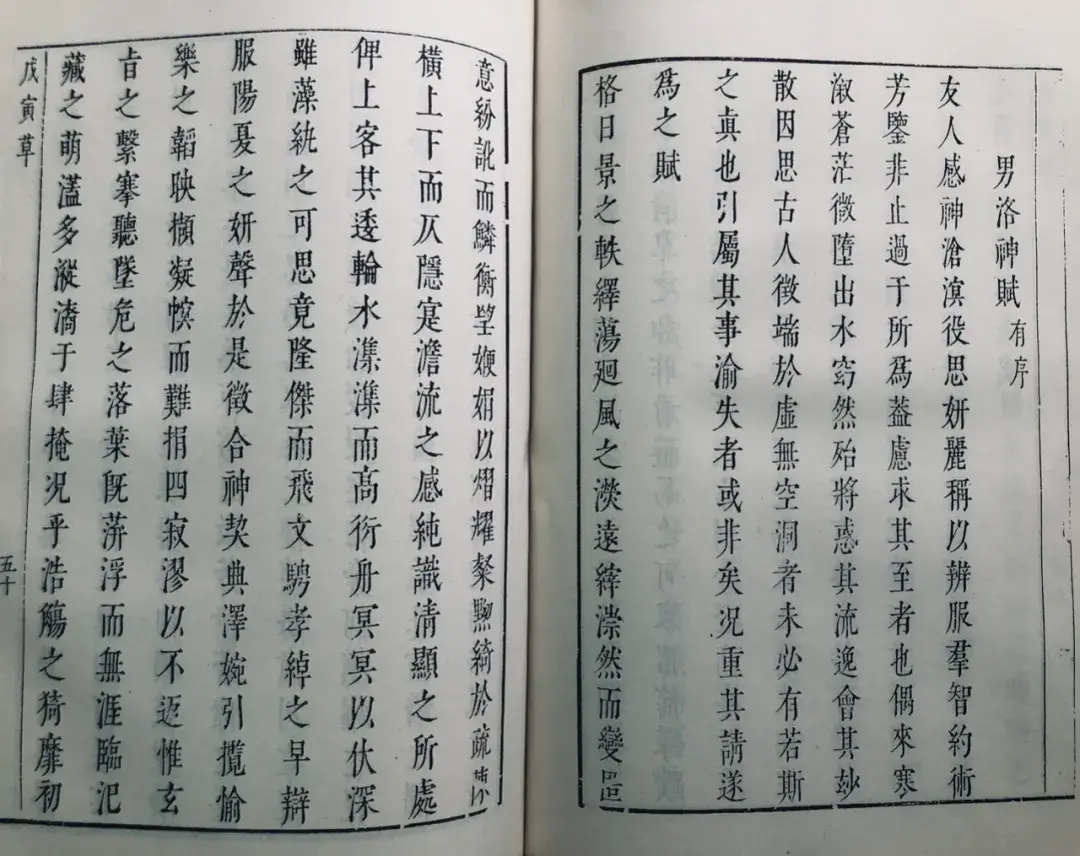 男洛神賦有序
友人感神滄溟役思妍麗稱以辨服羣智約術
芳鑒非止過于所爲葢慮求其至者也偶來寒
溆蒼茫微墮出水窈然殆將惑其流逸會其妙
散因思古人徵端於虛無空洞者未必有若斯
之眞也引屬其事渝失者或非矣况重其請遂
爲之賦
格日景之軼繹蕩廻風之濙遠縡漴然而變㠯
意紛訛而鱗衡望㛹娟以熠燿粲黝綺於疏陳
橫上下而仄隱寔澹流之感純識清顯之所處
俾上客其逶輪水潗潗而高衍舟冥冥以伏深
雖藻紈之可思竟隆傑而飛文騁孝綽之早辯
服陽夏之妍聲於是徵合神契典澤婉引攬愉
樂之韜映擷凝幎而難捐四寂漻以不迈惟玄
旨之繫搴聽墜危之落葉旣蓱浮而無涯臨汜
藏之萌濫多漎潏于肆掩况乎浩觴之猗靡初
戊寅草
五十